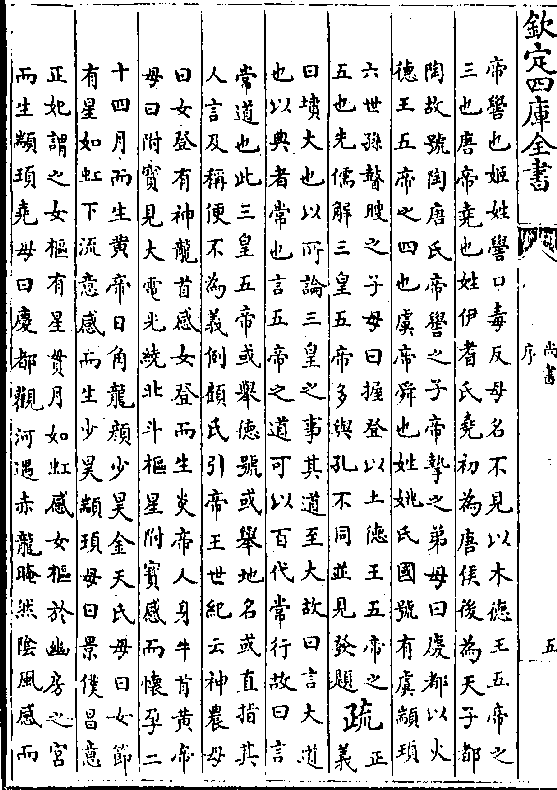 欽定四庫全書
尚書
序
五
帝嚳也姬姓嚳口毒反母名不見以木德王五帝之
三也唐帝堯也姓伊耆氏堯初為唐侯後為天子都
陶故號陶唐氏帝嚳之子帝摯之弟母曰慶都以火
德王五帝之四也虞帝舜也姓姚氏國號有虞顓頊
六世孫瞽瞍之子母曰握登以土德王五帝之
五也先儒解三皇五帝多與孔不同並見發題
疏
正
義
曰墳大也以所論三皇之事其道至大故曰言大道
也以典者常也言五帝之道可以百代常行故曰言
常道也此三皇五帝或舉德號或舉地名或直指其
人言及稱便不為義例顧氏引帝王世紀云神農母
曰女登有神龍首感女登而生炎帝人身牛首黃帝
母曰附寶見大電光繞北斗樞星附寶感而懷孕二
十四月而生黃帝日角龍顏少昊金天氏母曰女節
有星如虹下流意感而生少昊顓頊母曰景僕昌意
正妃謂之女樞有星貫月如虹感女樞於幽房之宮
而生顓頊堯母曰慶都觀河遇赤龍晻然陰風感而